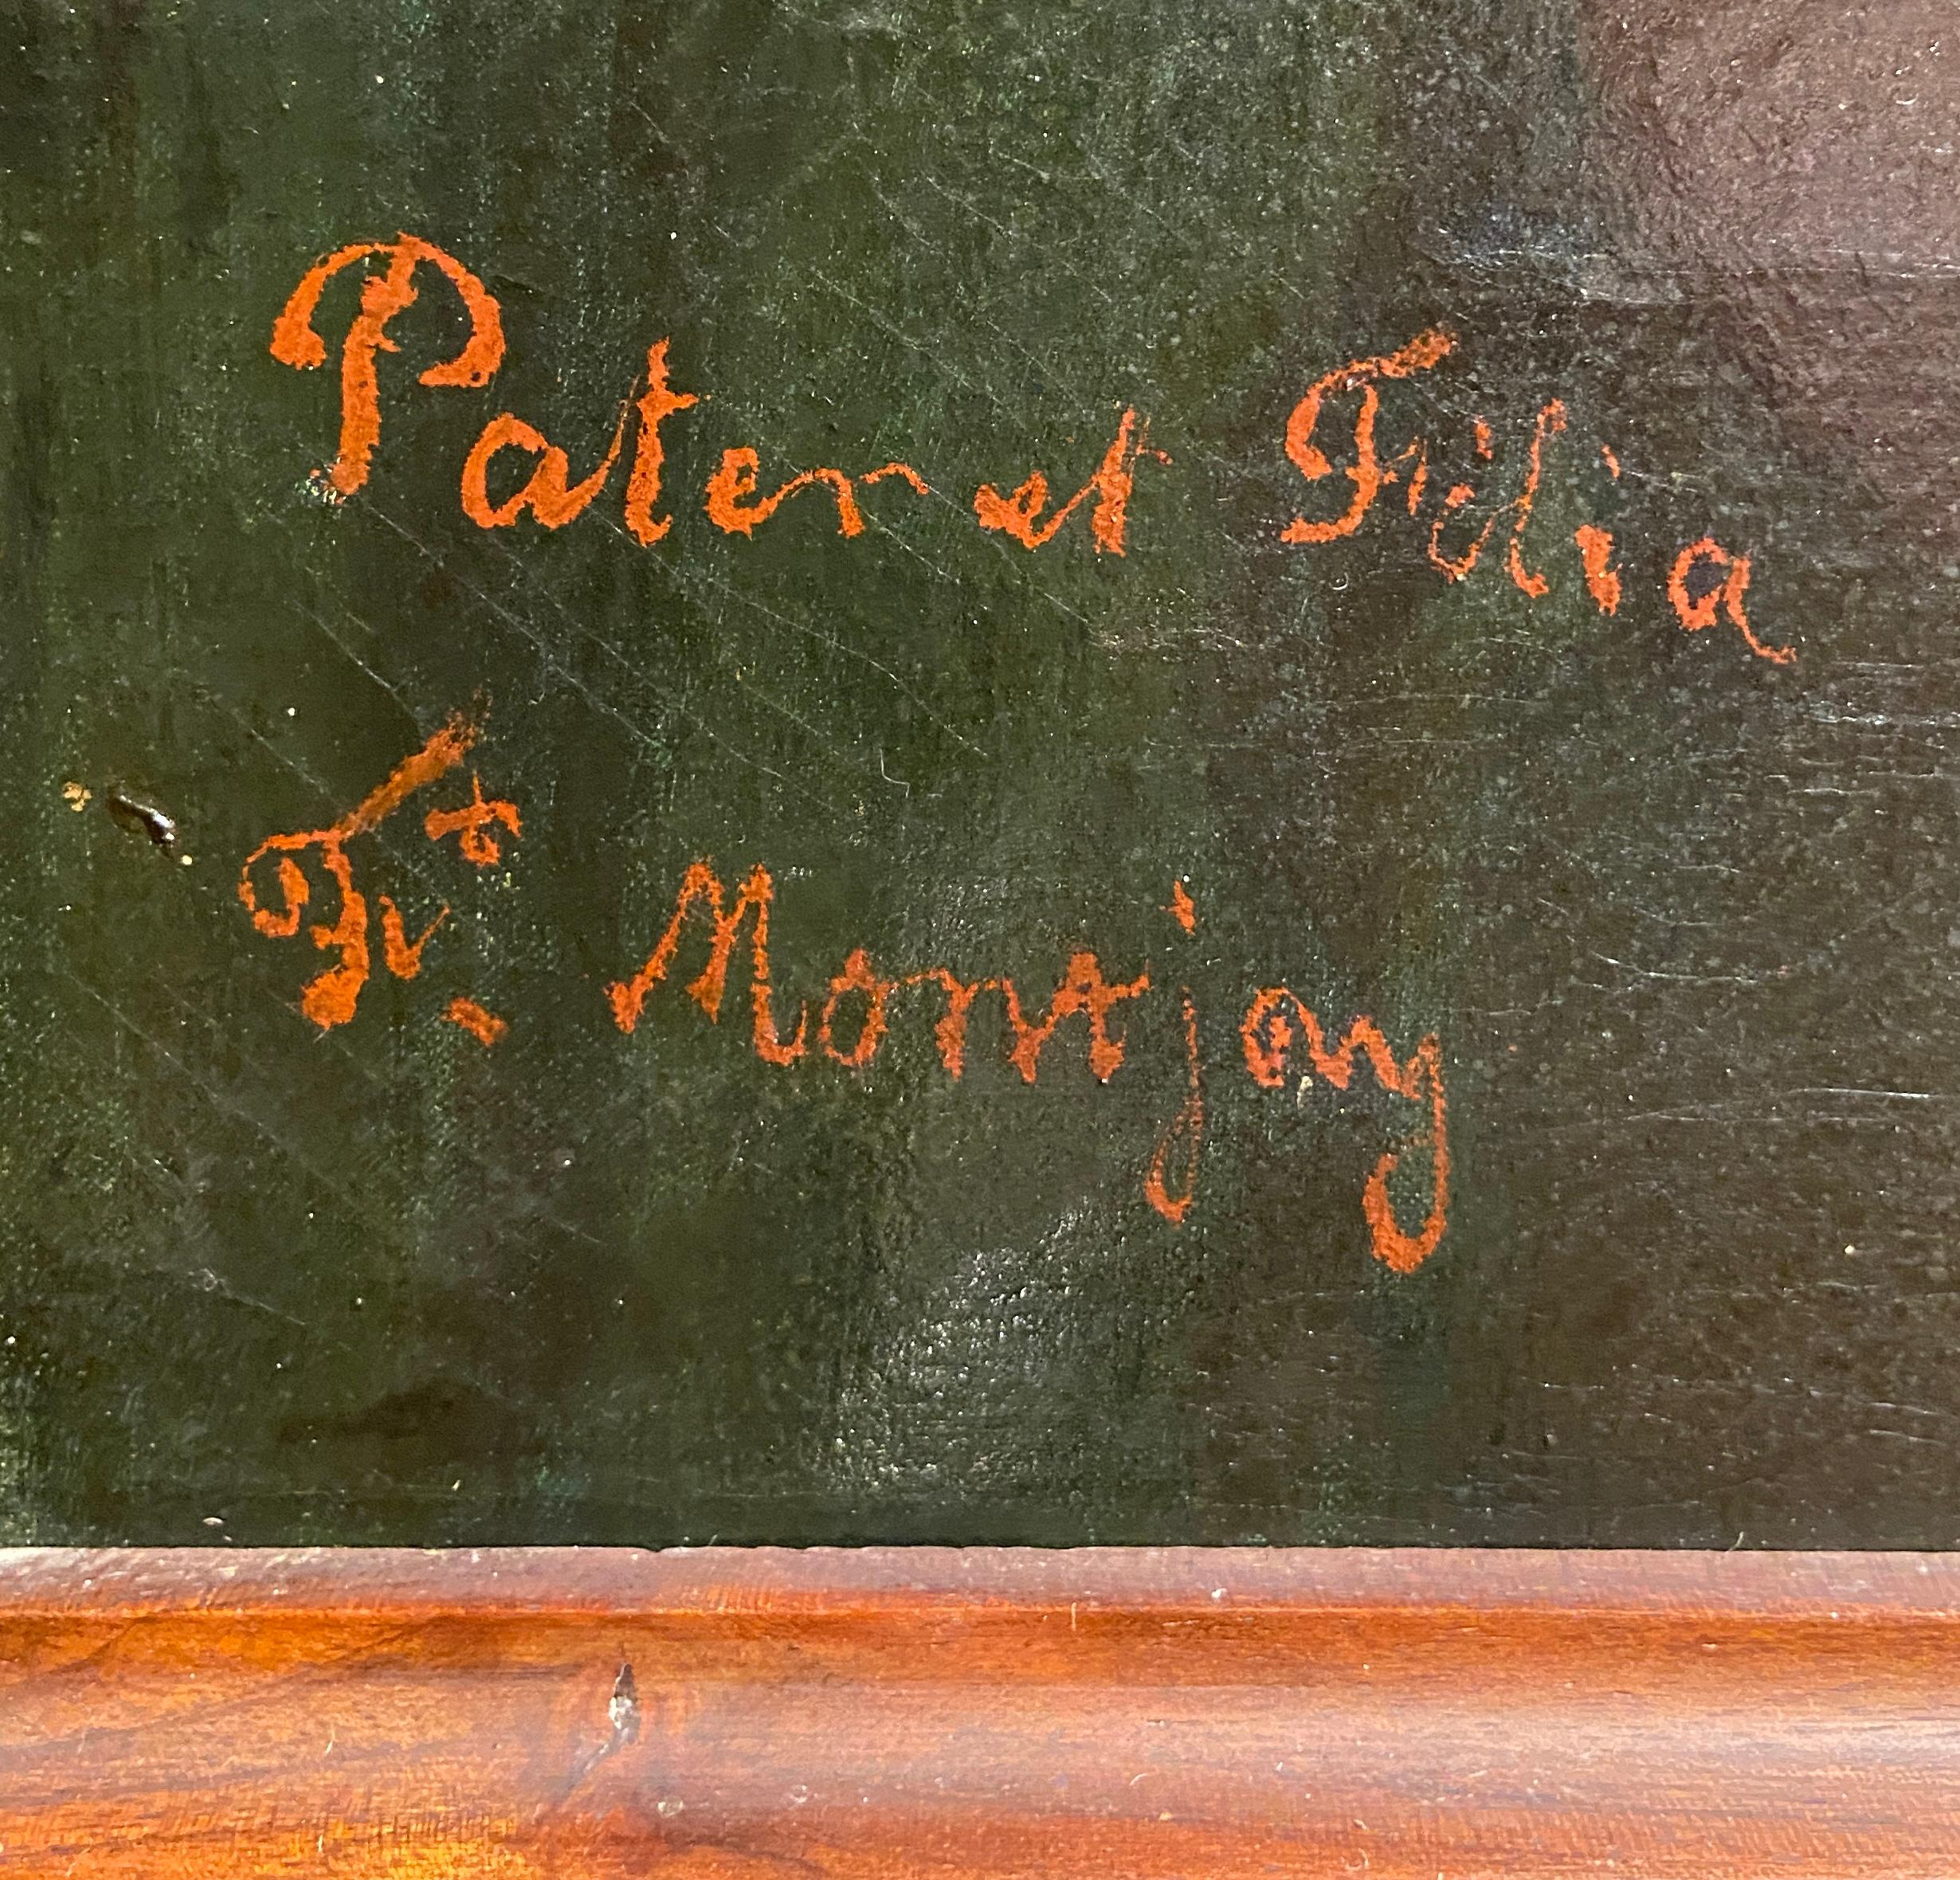 Pater et Filia
Frt. Montjoy